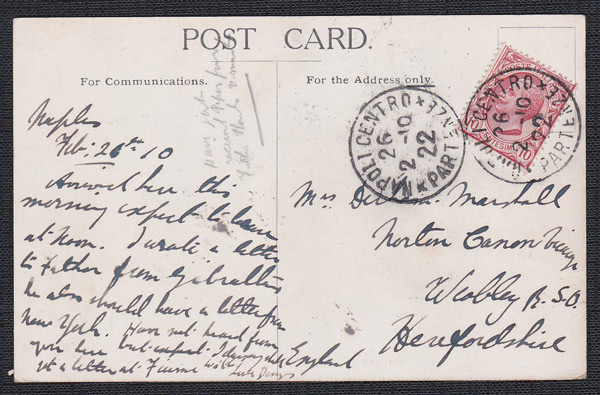 POST CARD.
For Communications.
For the Address only.
Naples
Feb: 26th 10
Arrived here this
morning expect to leave
at noon. I wrote a letter
to Father from Gibraltar
he also should have a letter from
New York. Have not heard from
you here but expect
get a letter at Fiume
have just
received
Mrs Marshall
Norton Canon Vicarage
Weobley R.S.O.
Herefordshire
England
NAPOLI CENTRO * PARTENZE *
26
2-10
22
NAPOLI CENTRO * PARTENZE *
26
2-10
22
10